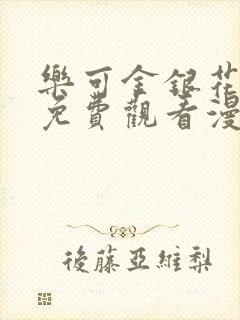 樂可金銀花
免費觀看漫
後藤亞維梨